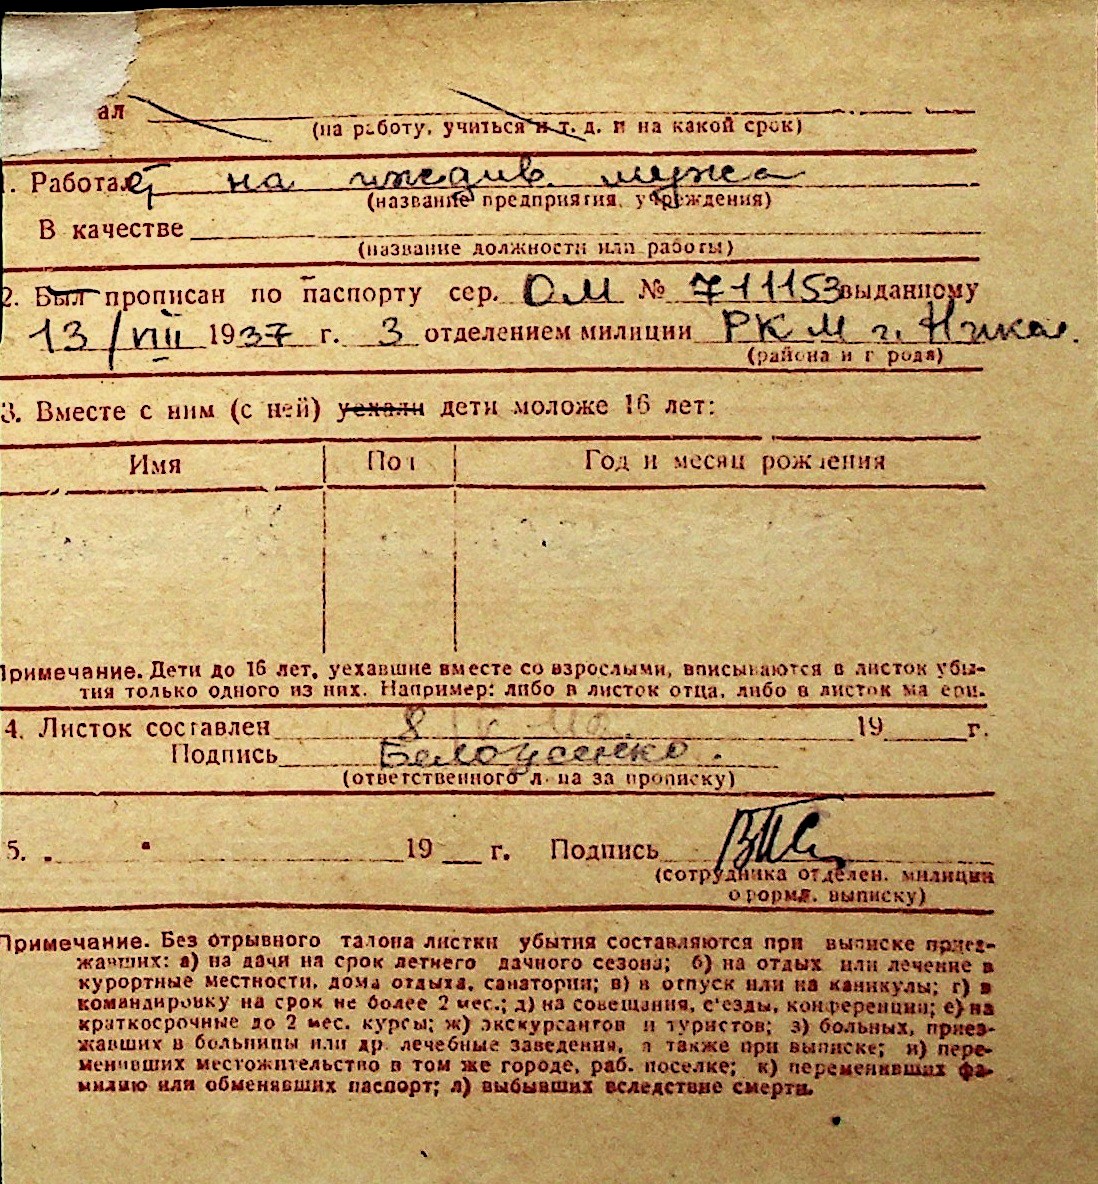 ал
(на работу, учиться и т. д. и на какой срок)
1. Работал на иждив. мужа
(название предприятия, учреждения)
В качестве
(название должности или работы)
2. Был прописан по паспорту сер. ОМ № 711153 выданному
13/VIII 1937 г. 3 отделением милиции РКМ г. Никол.
(района и города)
3. Вместе с ним (с ней) уехали дети моложе 16 лет:
Имя Пол Год и месяц рождения
Примечание. Дети до 16 лет, уехавшие вместе со взрослыми, вписываются в листок убы-
тия только одного из них. Например: либо в листок отца, либо в листок матери.
4. Листок составлен 8 19 г.
Подпись Белоусенко.
(ответственного лица за прописку)
5. „ " 19 г. Подпись
(сотрудника отделен. милиции
оформл. выписку)
Примечание. Без отрывного талона листки убытия составляются при выписке приез-
жавших: а) на дачи на срок летнего дачного сезона; б) на отдых или лечение в
курортные местности, дома отдыха, санатории; в) в отпуск или на каникулы; г) в
командировку на срок не более 2 мес.; д) на совещания, с'езды, конференции; е) на
краткосрочные до 2 мес. курсы; ж) экскурсантов и туристов; з) больных, приез-
жавших в больницы или др. лечебные заведения, а также при выписке; и) пере-
менивших местожительство в том же городе, раб. поселке; к) переменивших фа-
милию или обменявших паспорт; л) выбывших вследствие смерти.